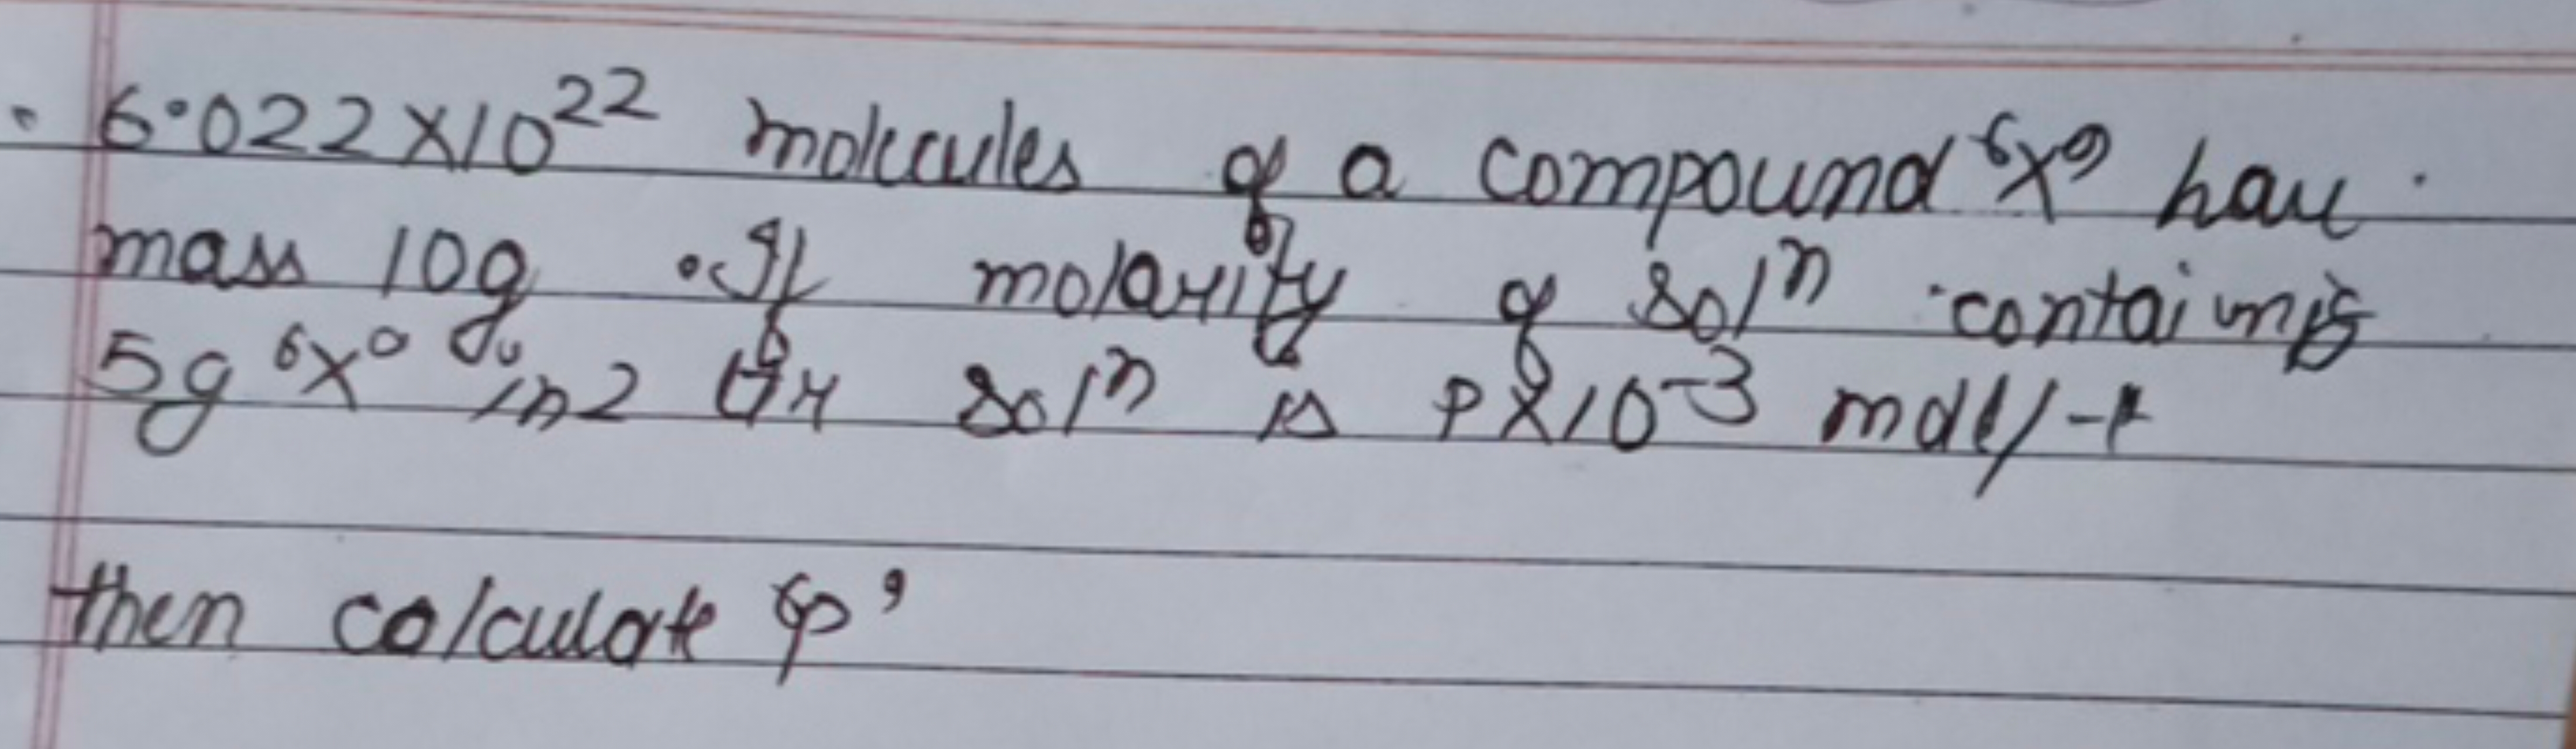 6.022×10²² molecules of a compound 'X' have
mass 10g. If molarity of solⁿ containing
5g 'X' in 2 ltr solⁿ is P×10⁻³ mol/
then calculate 'p'